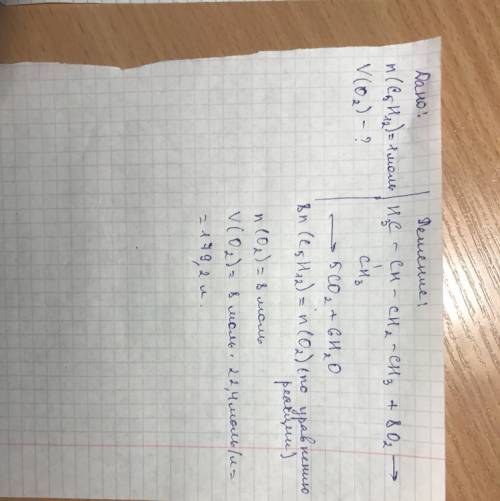 Дано:
n(C5H12)=1моль
V(O2) - ?
Решение:
H3C - CH - CH2 - CH3 + 8O2 ⟶
CH3
⟶ 5CO2 + 6H2O
8n(C5H12) = n(O2) (по уравнению
реакции)
n(O2) = 8 моль
V(O2) = 8 моль · 22,4 моль/л =
= 179,2 л.